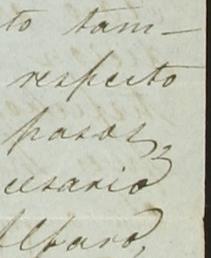 to tam-
respecto
pasos,
cesario
Alfaro,